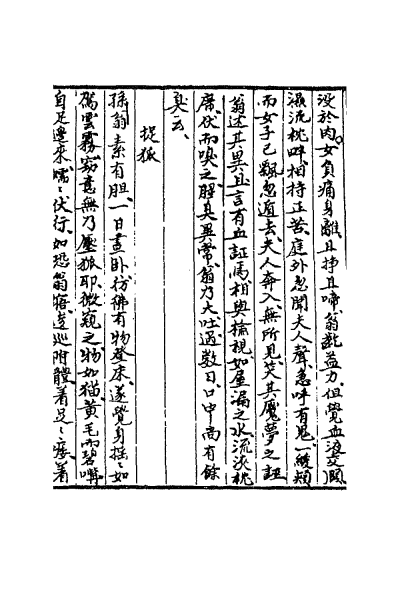 没於肉女負痛身離且掙且啼翁齕益力但覺血液交頤
濕流枕畔相持正苦庭外忽聞夫人聲急呼有鬼一緩頰
而女子已飄忽遁去夫人奔入無所見笑其魘夢之誣
翁述其異且言有血証焉相與檢視如屋漏之水流浹枕
席伏而嗅之腥臭異常翁乃大吐過數日口中尚有餘
臭云
捉狐
孫翁素有胆一日晝卧彷彿有物登床遂覺身搖〻如
駕雲霧窃意無乃壓狐耶微窺之物如猫黄毛而碧嘴
自足邊來蠕〻伏行如恐翁寤逡巡附體着足〻痿着